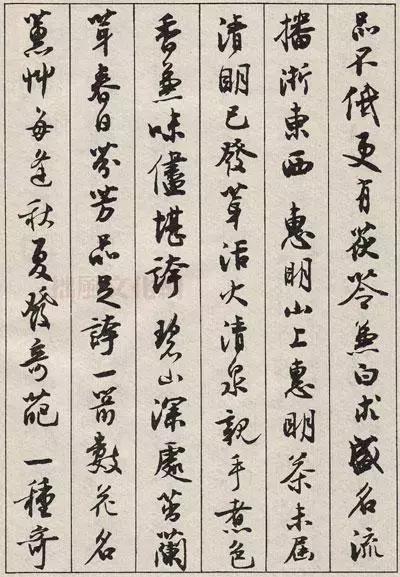 品不低更有茯苓兼白朮盛名流
播浙東西 惠明山上惠明茶未屆
清明已發芽活火清泉親手煮色
香兼味儘堪誇 碧山深處茁蘭
芽春日芬芳品足誇一箭數花名
蕙艸每逢秋夏發奇葩 一種奇